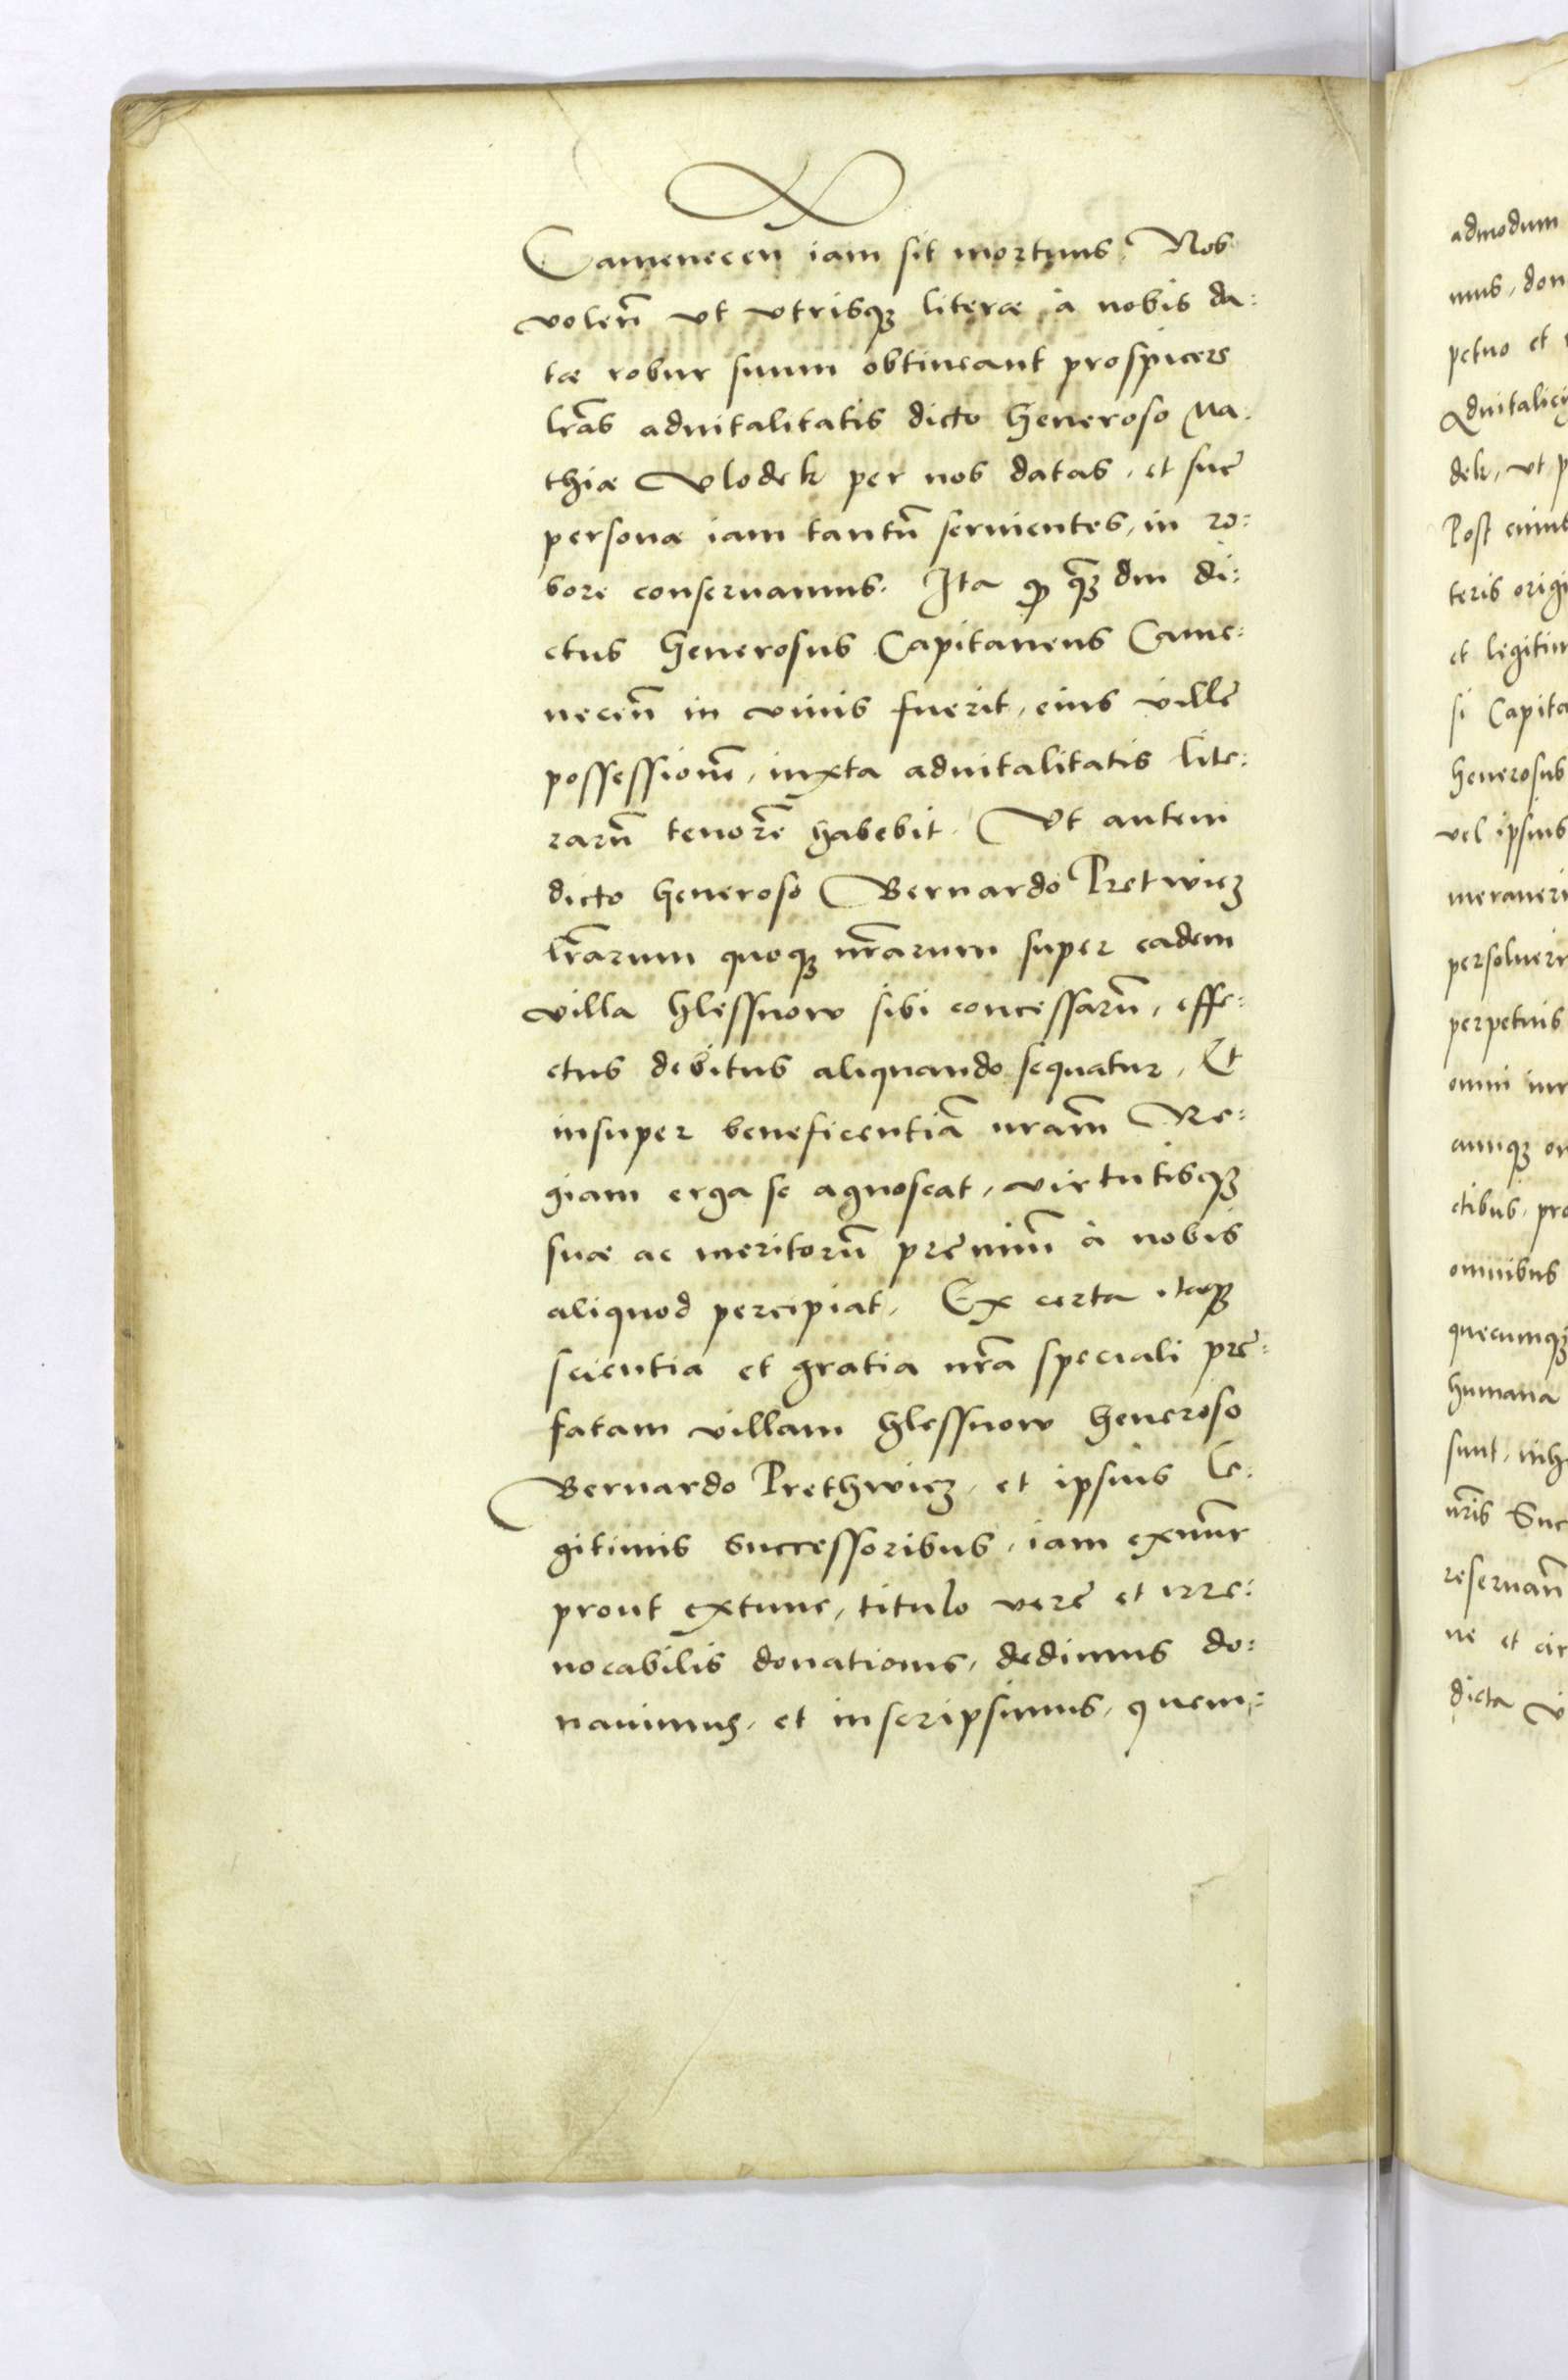 Camenecen̄ iam sit mortuus. Nos
volen̄ vt vtrisq₃ literæ à nobis da:
tæ robur suum obtineant prospicere
lr̄as aduitalitatis dicto Generoso Ma:
thiæ Vlodek per nos datas, et suę
personæ iam tantū seruientes, in ro:
bore conseruamus. Ita ꝙ q̄₃ diu di:
ctus Generosus Capitaneus Came:
necen̄ in viuis fuerit, eius villę
possessionē, iuxta aduitalitatis lite:
rarū tenorē habebit. Vt autem
dicto Generoso Bernardo Pretwicz
lr̄arum quoq₃ nr̄arum super eadem
villa Hlessnow sibi concessarū, effe:
ctus debitus aliquando sequatur, Et
insuper beneficentiā nram̄ Re:
giam erga se agnoscat, virtutisq₃
suæ ac meritorū pręmiū à nobis
aliquod percipiat, Ex certa itaq₃
scientia et gratia nr̄a speciali prę:
fatam villam Hlessnow Generoso
Bernardo Prethwicz, et ipsius le:
gitimis successoribus, iam exnūc
prout extunc, titulo verę et irre:
uocabilis donationis, dedimus do:
nauimus, et inscripsimus, quem:
admodum
mus, don
petuo et
Aduitalici
dek, vt p
Post eius
teris origi
et legitim
si Capita
Generosus
vel ipsius
meraueri
persoluerin
perpetuis
omni iur
cumq₃ on
ctibus, pro
omnibus
quecumq₃
humana
sunt, nih
nr̄is Suc
reseruan̄
ne et cir
dicta v